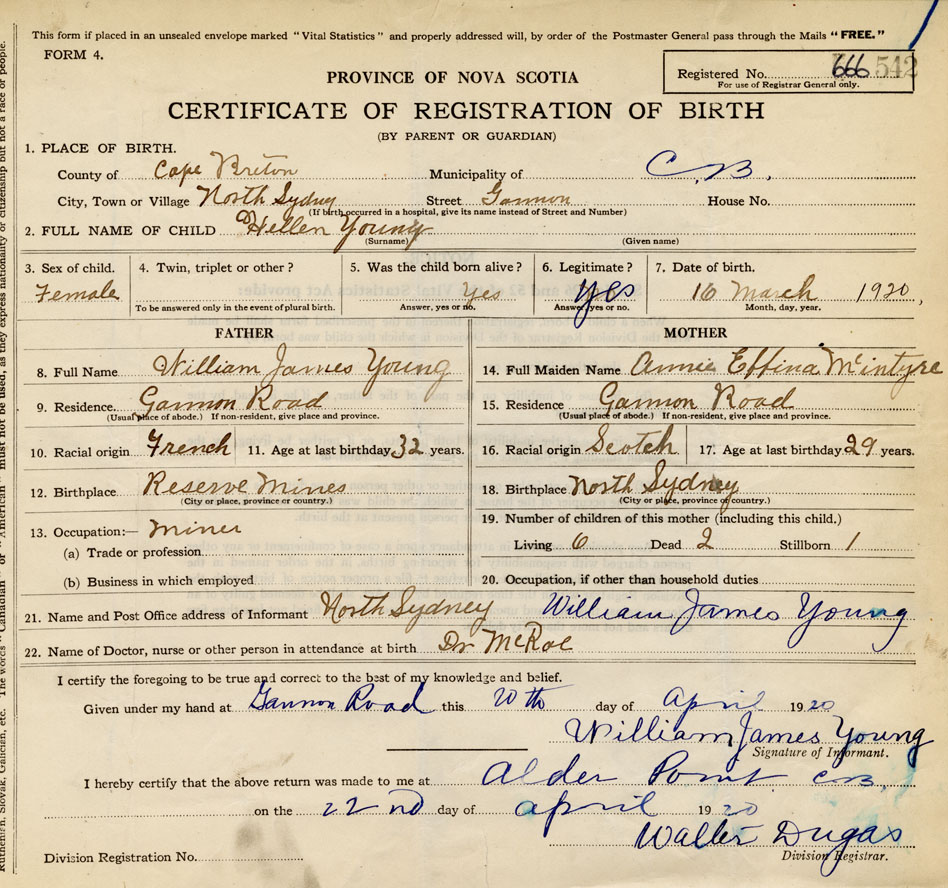 This form if placed in an unsealed envelope marked "Vital Statistics" and properly addressed will, by order of the Postmaster General pass through the Mails "FREE."
FORM 4.
PROVINCE OF NOVA SCOTIA
Registered No. 666 542
For use of Registrar General only.
CERTIFICATE OF REGISTRATION OF BIRTH
(BY PARENT OR GUARDIAN)
1. PLACE OF BIRTH.
County of Cape Breton Municipality of C.B.
City, Town or Village North Sydney Street Gannon House No.
(If birth occurred in a hospital, give its name instead of Street and Number)
2. FULL NAME OF CHILD Hellen Young
(Surname) (Given name)
3. Sex of child. 4. Twin, triplet or other? 5. Was the child born alive? 6. Legitimate? 7. Date of birth.
Female Yes Yes 16 March 1920
To be answered only in the event of plural birth. Answer, yes or no. Answer, yes or no. Month, day, year.
FATHER MOTHER
8. Full Name William James Young 14. Full Maiden Name Annie Effina McIntyre
9. Residence. Gannon Road 15. Residence Gannon Road
(Usual place of abode.) If non-resident, give place and province. (Usual place of abode.) If non-resident, give place and province.
10. Racial origin French 11. Age at last birthday 32 years. 16. Racial origin Scotch 17. Age at last birthday 29 years.
12. Birthplace Reserve Mines 18. Birthplace North Sydney
(City or place, province or country.) (City or place, province or country.)
13. Occupation:— Miner 19. Number of children of this mother (including this child.)
(a) Trade or profession Living 6 Dead 2 Stillborn 1
(b) Business in which employed 20. Occupation, if other than household duties
21. Name and Post Office address of Informant North Sydney William James Young
22. Name of Doctor, nurse or other person in attendance at birth Dr McRae
I certify the foregoing to be true and correct to the best of my knowledge and belief.
Given under my hand at Gannon Road this 20th day of April 1920
William James Young
Signature of Informant.
I hereby certify that the above return was made to me at Alder Point C.B.
on the 22nd day of April 1920
Walter Dugas
Division Registrar.
Division Registration No.
Ruthenian, Slovak, Galician, etc. The words "Canadian" or "American" must not be used, as they express nationality or citizenship but not a race or people.